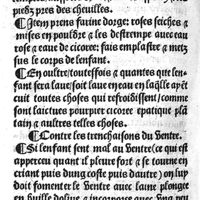 piedz pres des cheuilles.
¶ Item prens farine dorge: roses seiches a
mises en pouldre a les destrempe auec eau
rose a eaue de cicoree: fais emplastre a metz
sus le corps de lenfant.
¶ En oultre/toutesfois a quantes que len-
fant sera laue/soit laue en eau en laqlle ayēt
cuit toutes choses qui refroidissent/comme
sont laictues pourpier cicoree epatique plā
tain/a aultres telles choses.
¶ Contre les trenchaisons du Ventre.
¶ Si lenfant sent mal au Ventre(ce qui est
apperceu quant il pleure fort a se tourne en
criant puis dung coste puis dautre) on luy
doit fomenter le Ventre auec laine plongee
en huille